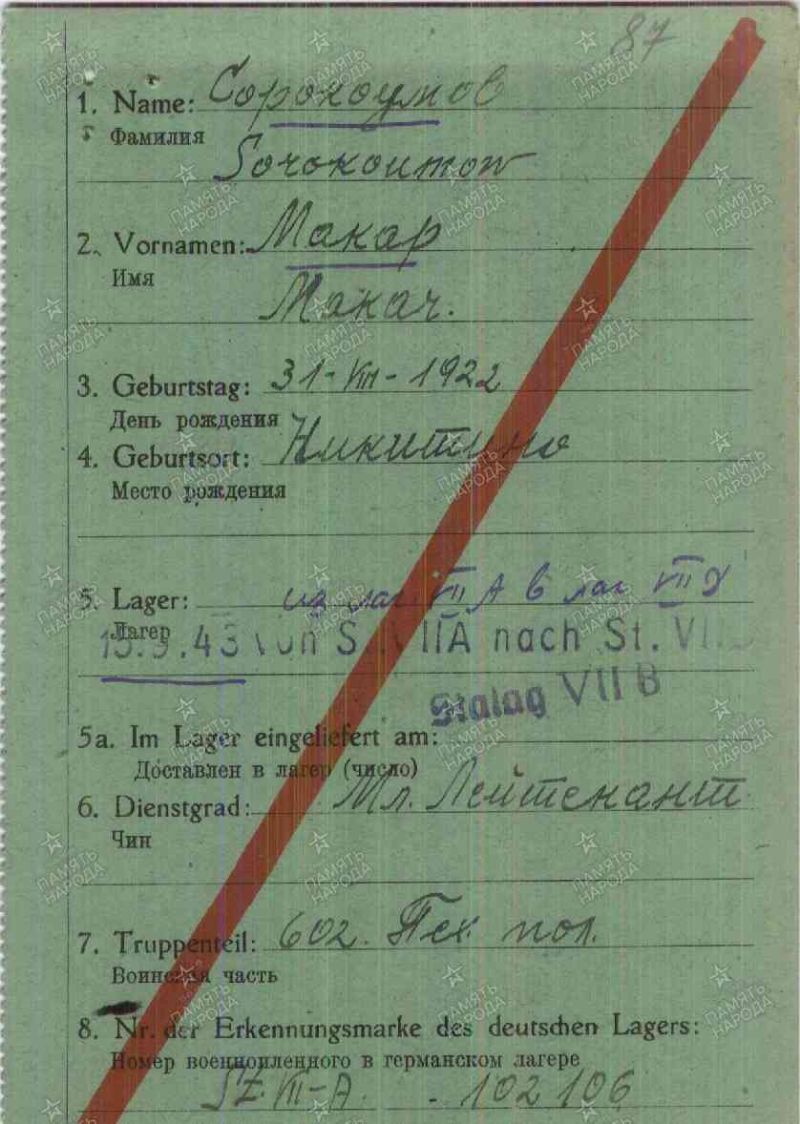 87
1. Name: Сорокоумов
Фамилия
Sorokoumow
2. Vornamen: Макар
Имя
Makar.
3. Geburtstag: 31-VIII-1922
День рождения
4. Geburtsort: Никитино
Место рождения
5. Lager: из лаг VII A в лаг VII
Лагер
43 von S VIIA nach St. VII
Stalag VII B
5a. Im Lager eingeliefert am:
Доставлен в лагер (число)
6. Dienstgrad: Мл. Лейтенант
Чин
7. Truppenteil: 602. пол.
Воинская часть
8. Nr. der Erkennungsmarke des deutschen Lagers:
Номер военнопленного в германском лагере
St. VII-A. - 102106
ПАМЯТЬ НАРОДА